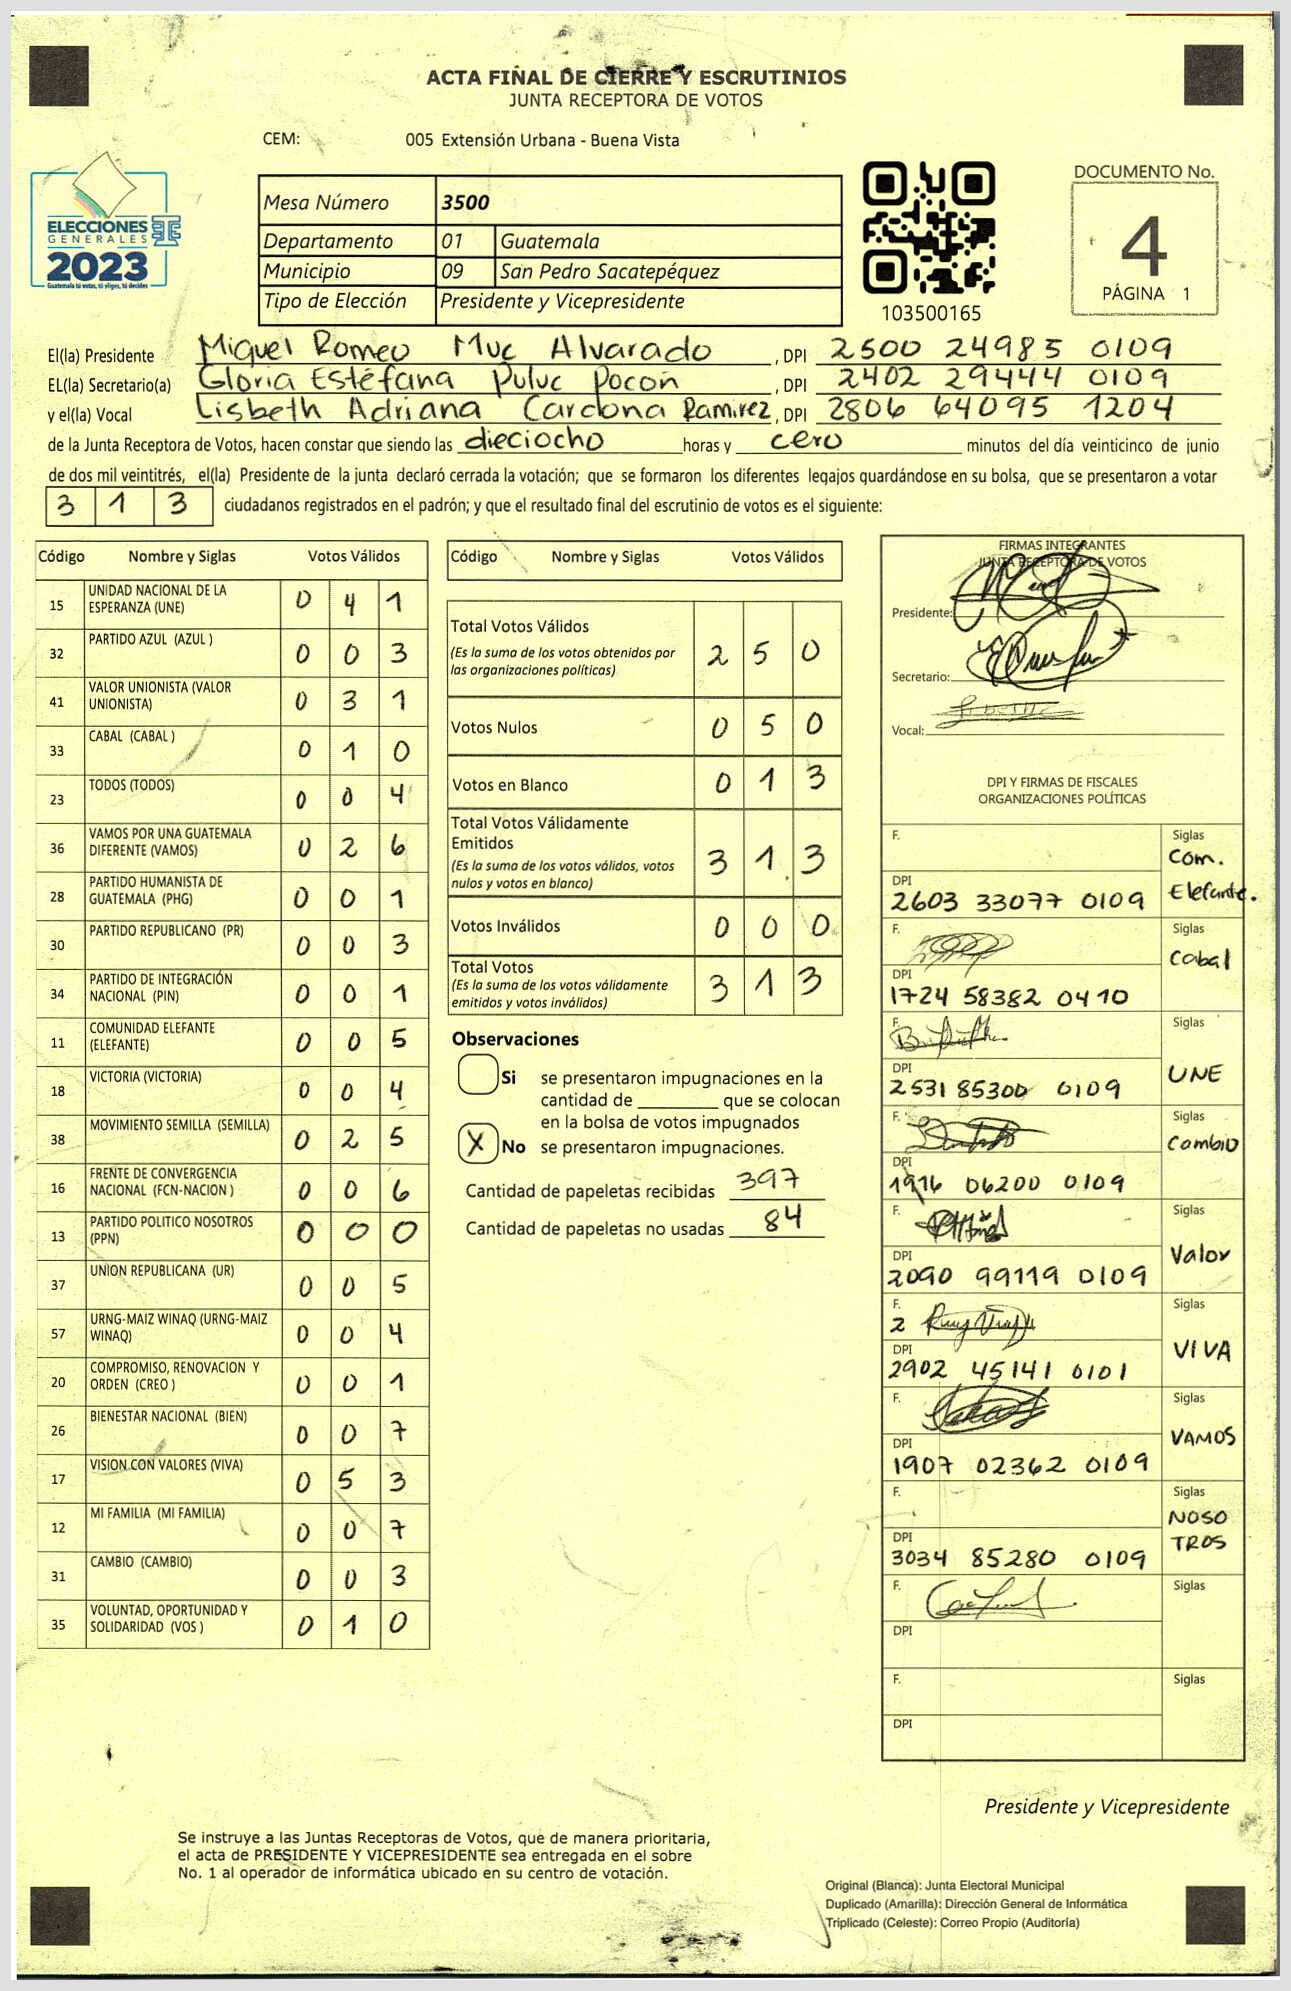 ACTA FINAL DE CIERRE Y ESCRUTINIOS
JUNTA RECEPTORA DE VOTOS
CEM: 005 Extensión Urbana - Buena Vista
ELECCIONES
GENERALES
2023
Guatemala tú votas, tú eliges, tú decides
Mesa Número 3500
Departamento 01 Guatemala
Municipio 09 San Pedro Sacatepéquez
Tipo de Elección Presidente y Vicepresidente
103500165
DOCUMENTO No.
4
PÁGINA 1
El(la) Presidente Miguel Romeo Muc Alvarado, DPI 2500 24985 0109
EL(la) Secretario(a) Gloria Estéfana Puluc Pocon, DPI 2402 29444 0109
y el(la) Vocal Lisbeth Adriana Cardona Ramirez, DPI 2806 64095 1204
de la Junta Receptora de Votos, hacen constar que siendo las dieciocho horas y cero minutos del día veinticinco de junio
de dos mil veintitrés, el(la) Presidente de la junta declaró cerrada la votación; que se formaron los diferentes legajos guardándose en su bolsa, que se presentaron a votar
3 1 3 ciudadanos registrados en el padrón; y que el resultado final del escrutinio de votos es el siguiente:
Código Nombre y Siglas Votos Válidos
15 UNIDAD NACIONAL DE LA
ESPERANZA (UNE) 0 4 1
32 PARTIDO AZUL (AZUL ) 0 0 3
41 VALOR UNIONISTA (VALOR
UNIONISTA) 0 3 1
33 CABAL (CABAL ) 0 1 0
23 TODOS (TODOS) 0 0 4
36 VAMOS POR UNA GUATEMALA
DIFERENTE (VAMOS) 0 2 6
28 PARTIDO HUMANISTA DE
GUATEMALA (PHG) 0 0 1
30 PARTIDO REPUBLICANO (PR) 0 0 3
34 PARTIDO DE INTEGRACIÓN
NACIONAL (PIN) 0 0 1
11 COMUNIDAD ELEFANTE
(ELEFANTE) 0 0 5
18 VICTORIA (VICTORIA) 0 0 4
38 MOVIMIENTO SEMILLA (SEMILLA) 0 2 5
16 FRENTE DE CONVERGENCIA
NACIONAL (FCN-NACION ) 0 0 6
13 PARTIDO POLITICO NOSOTROS
(PPN) 0 0 0
37 UNION REPUBLICANA (UR) 0 0 5
57 URNG-MAIZ WINAQ (URNG-MAIZ
WINAQ) 0 0 4
20 COMPROMISO, RENOVACION Y
ORDEN (CREO ) 0 0 1
26 BIENESTAR NACIONAL (BIEN) 0 0 7
17 VISION CON VALORES (VIVA) 0 5 3
12 MI FAMILIA (MI FAMILIA) 0 0 7
31 CAMBIO (CAMBIO) 0 0 3
35 VOLUNTAD, OPORTUNIDAD Y
SOLIDARIDAD (VOS ) 0 1 0
Código Nombre y Siglas Votos Válidos
Total Votos Válidos 2 5 0
(Es la suma de los votos obtenidos por
las organizaciones políticas)
Votos Nulos 0 5 0
Votos en Blanco 0 1 3
Total Votos Válidamente
Emitidos 3 1 3
(Es la suma de los votos válidos, votos
nulos y votos en blanco)
Votos Inválidos 0 0 0
Total Votos 3 1 3
(Es la suma de los votos válidamente
emitidos y votos inválidos)
Observaciones
Si se presentaron impugnaciones en la
cantidad de ________ que se colocan
en la bolsa de votos impugnados
X No se presentaron impugnaciones.
Cantidad de papeletas recibidas 397
Cantidad de papeletas no usadas 84
FIRMAS INTEGRANTES
JUNTA RECEPTORA DE VOTOS
Presidente:
Secretario:
Vocal:
DPI Y FIRMAS DE FISCALES
ORGANIZACIONES POLÍTICAS
F. Siglas
Com.
Elefante.
DPI
2603 33077 0109
F. Siglas
Cabal
DPI
1724 58382 0410
F. Siglas
UNE
DPI
2531 85300 0109
F. Siglas
Cambio
DPI
1916 06200 0109
F. Siglas
Valor
DPI
2090 99119 0109
F. Siglas
2
VIVA
DPI
2902 45141 0101
F. Siglas
VAMOS
DPI
1907 02362 0109
F. Siglas
NOSO
TROS
DPI
3034 85280 0109
F. Siglas
DPI
F. Siglas
DPI
Presidente y Vicepresidente
Se instruye a las Juntas Receptoras de Votos, que de manera prioritaria,
el acta de PRESIDENTE Y VICEPRESIDENTE sea entregada en el sobre
No. 1 al operador de informática ubicado en su centro de votación.
Original (Blanca): Junta Electoral Municipal
Duplicado (Amarilla): Dirección General de Informática
Triplicado (Celeste): Correo Propio (Auditoría)